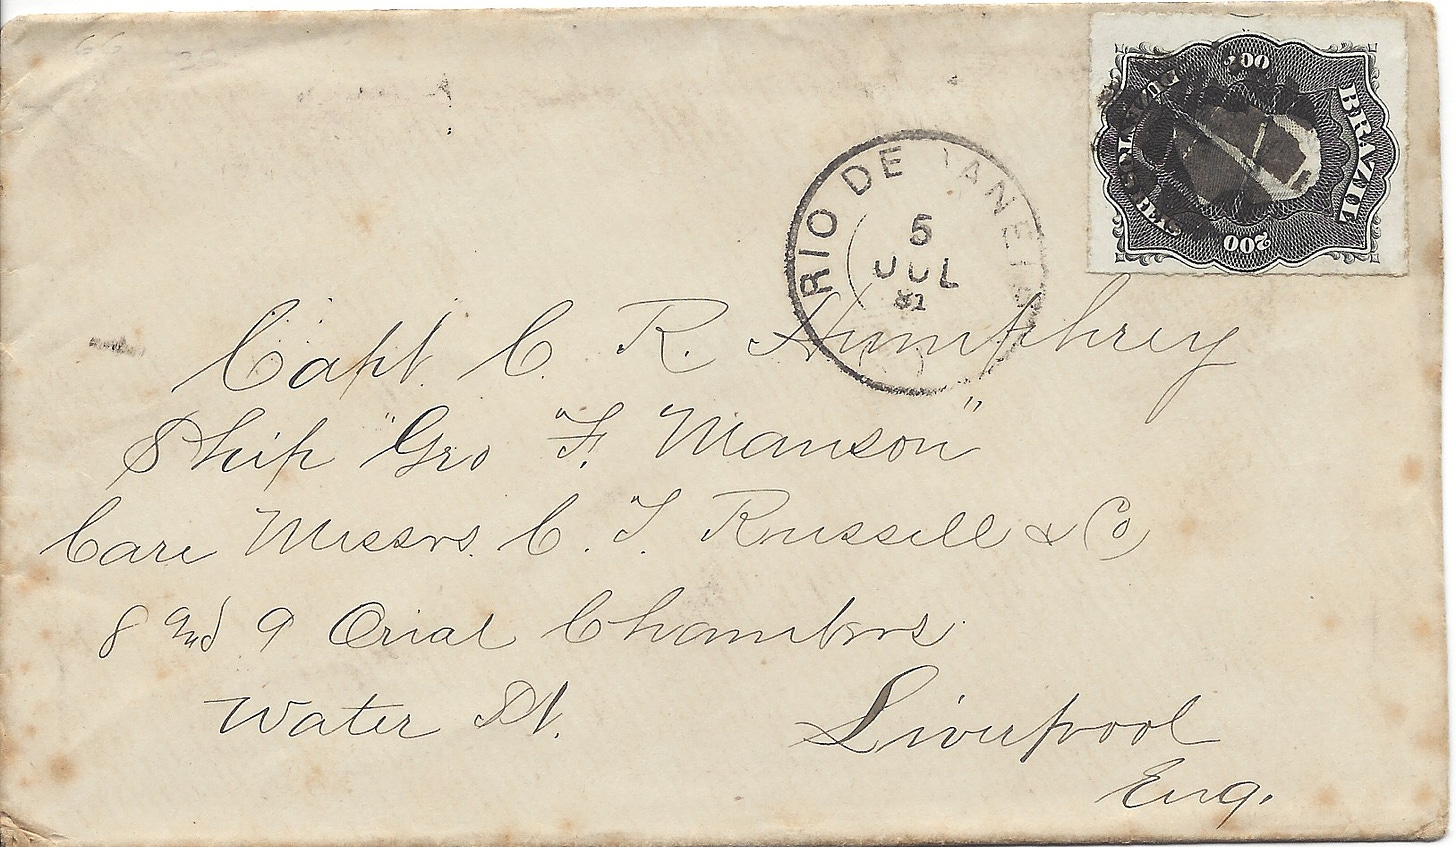 200
BRAZIL
200
RIO DE JANEIRO
5
JUL
81
Capt. C. R. Humphrey
Ship "Geo F. Manson"
Care Messrs. C. T. Russell & Co
8 and 9 Orial Chambers
Water St.
Liverpool
Eng.